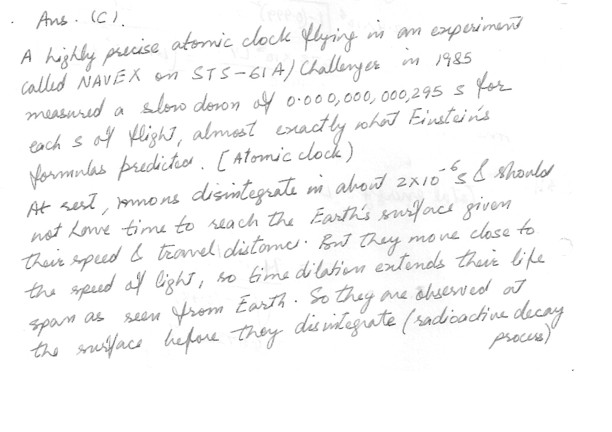 Ans. (C).
A highly precise atomic clock flying in an experiment
called NAVEX on STS-61A/Challenger in 1985
measured a slow down of 0.000,000,000,295 s for
each s of flight, almost exactly what Einstein's
formulas predicted. [Atomic clock)
At rest, muons disintegrate in about 2x10⁻⁶s & should
not have time to reach the Earth's surface given
their speed & travel distance. But they move close to
the speed of light, so time dilation extends their life
span as seen from Earth. So they are observed at
the surface before they disintegrate (radioactive decay
process)